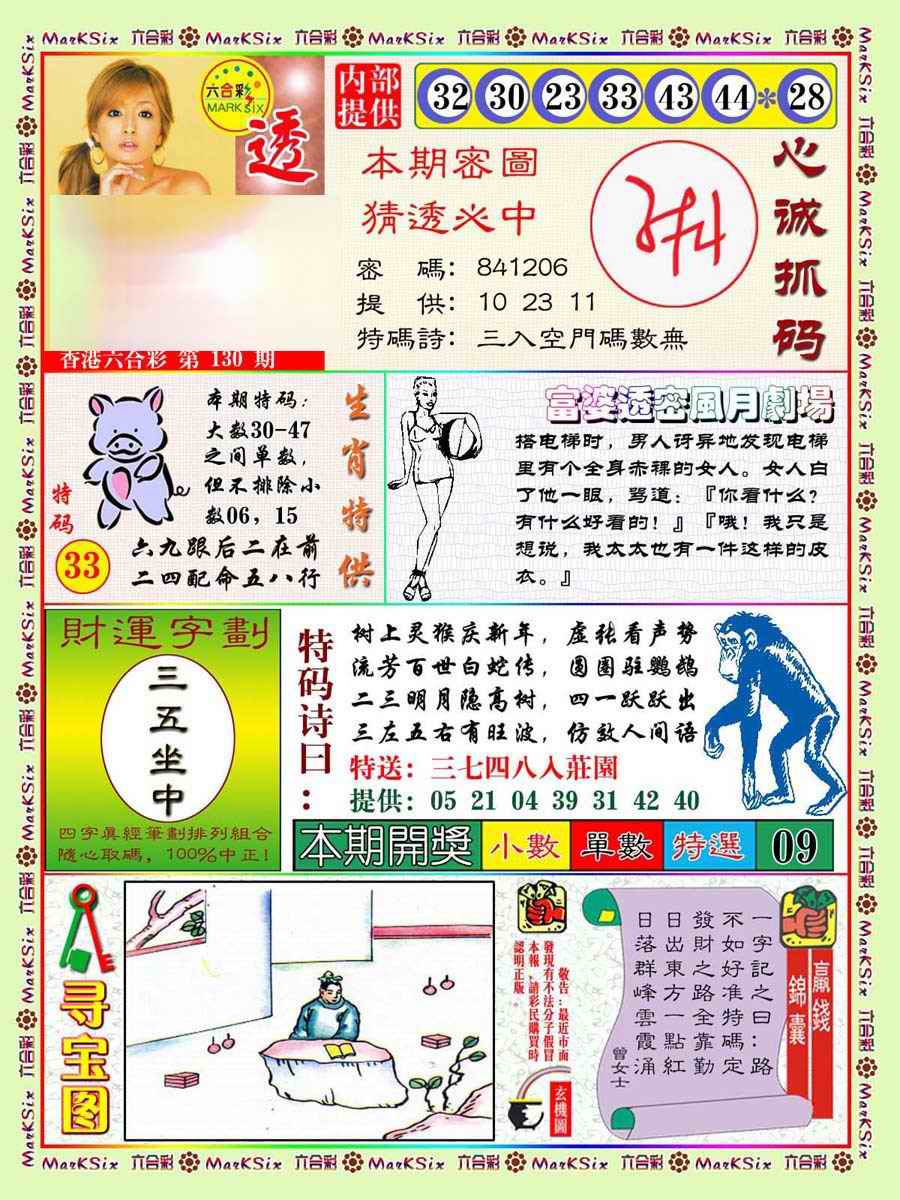 MarKSix 六合彩 MarKSix 六合彩 MarKSix 六合彩 MarKSix 六合彩 MarKSix 六合彩
六合彩
MARK SIX
透
内部
提供
32 30 23 33 43 44 * 28
本期密圖
猜透必中
密 碼: 841206
提 供: 10 23 11
特碼詩: 三入空門碼數無
心诚抓码
香港六合彩 第 130 期
特码
33
本期特码:
大数30-47
之间单数,
但不排除小
数06, 15
六九跟后二在前
二四配命五八行
生肖特供
富婆透密風月劇場
搭电梯时, 男人讶异地发现电梯
里有个全身赤裸的女人。女人白
了他一眼, 骂道: 『你看什么?
有什么好看的! 』『哦! 我只是
想说, 我太太也有一件这样的皮
衣。』
財運字劃
三五坐中
四字眞經筆劃排列組合
隨心取碼, 100%中正!
特码诗曰:
树上灵猴庆新年, 虚张看声势
流芳百世白蛇传, 圆圈驻鹦鹉
二三明月隐高树, 四一跃跃出
三左五右有旺波, 仿效人间语
特送: 三七四八入莊園
提供: 05 21 04 39 31 42 40
本期開獎 小數 單數 特選 09
寻宝图
敬告:最近市面
發現有不法分子假冒
本報,請彩民購買時
認明正版。
玄機圖
一字記之曰:路
不如好准特碼定
發財之路全靠勤
日出東方一點紅
日落群峰雲霞涌
曾女士
贏錢
錦囊
MarKSix 六合彩 MarKSix 六合彩 MarKSix 六合彩 MarKSix 六合彩 MarKSix 六合彩